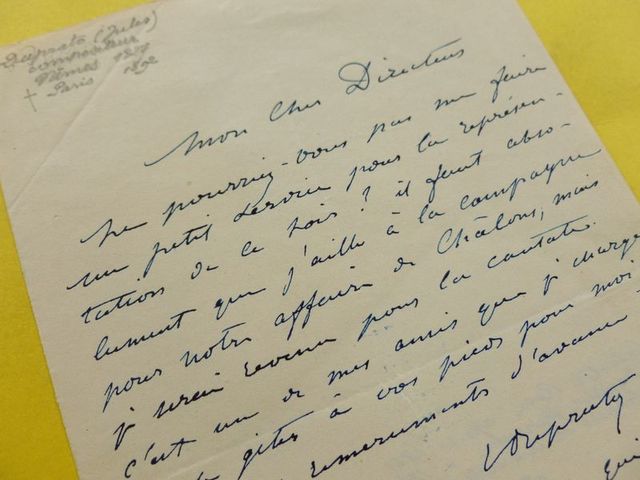 Duprato (Jules)
compositeur
Nîmes 1827
† Paris 1892
Mon cher Directeur
Ne pourriez-vous pas me faire
un petit service pour la représen-
tation de ce soir ? il faut abso-
lument que j'aille à la campagne
pour notre affaire de Châlons, mais
je serai revenu pour la cantate.
c'est un de mes amis que je charge
à vos pieds pour moi
remerciements d'avance
Duprato
qui